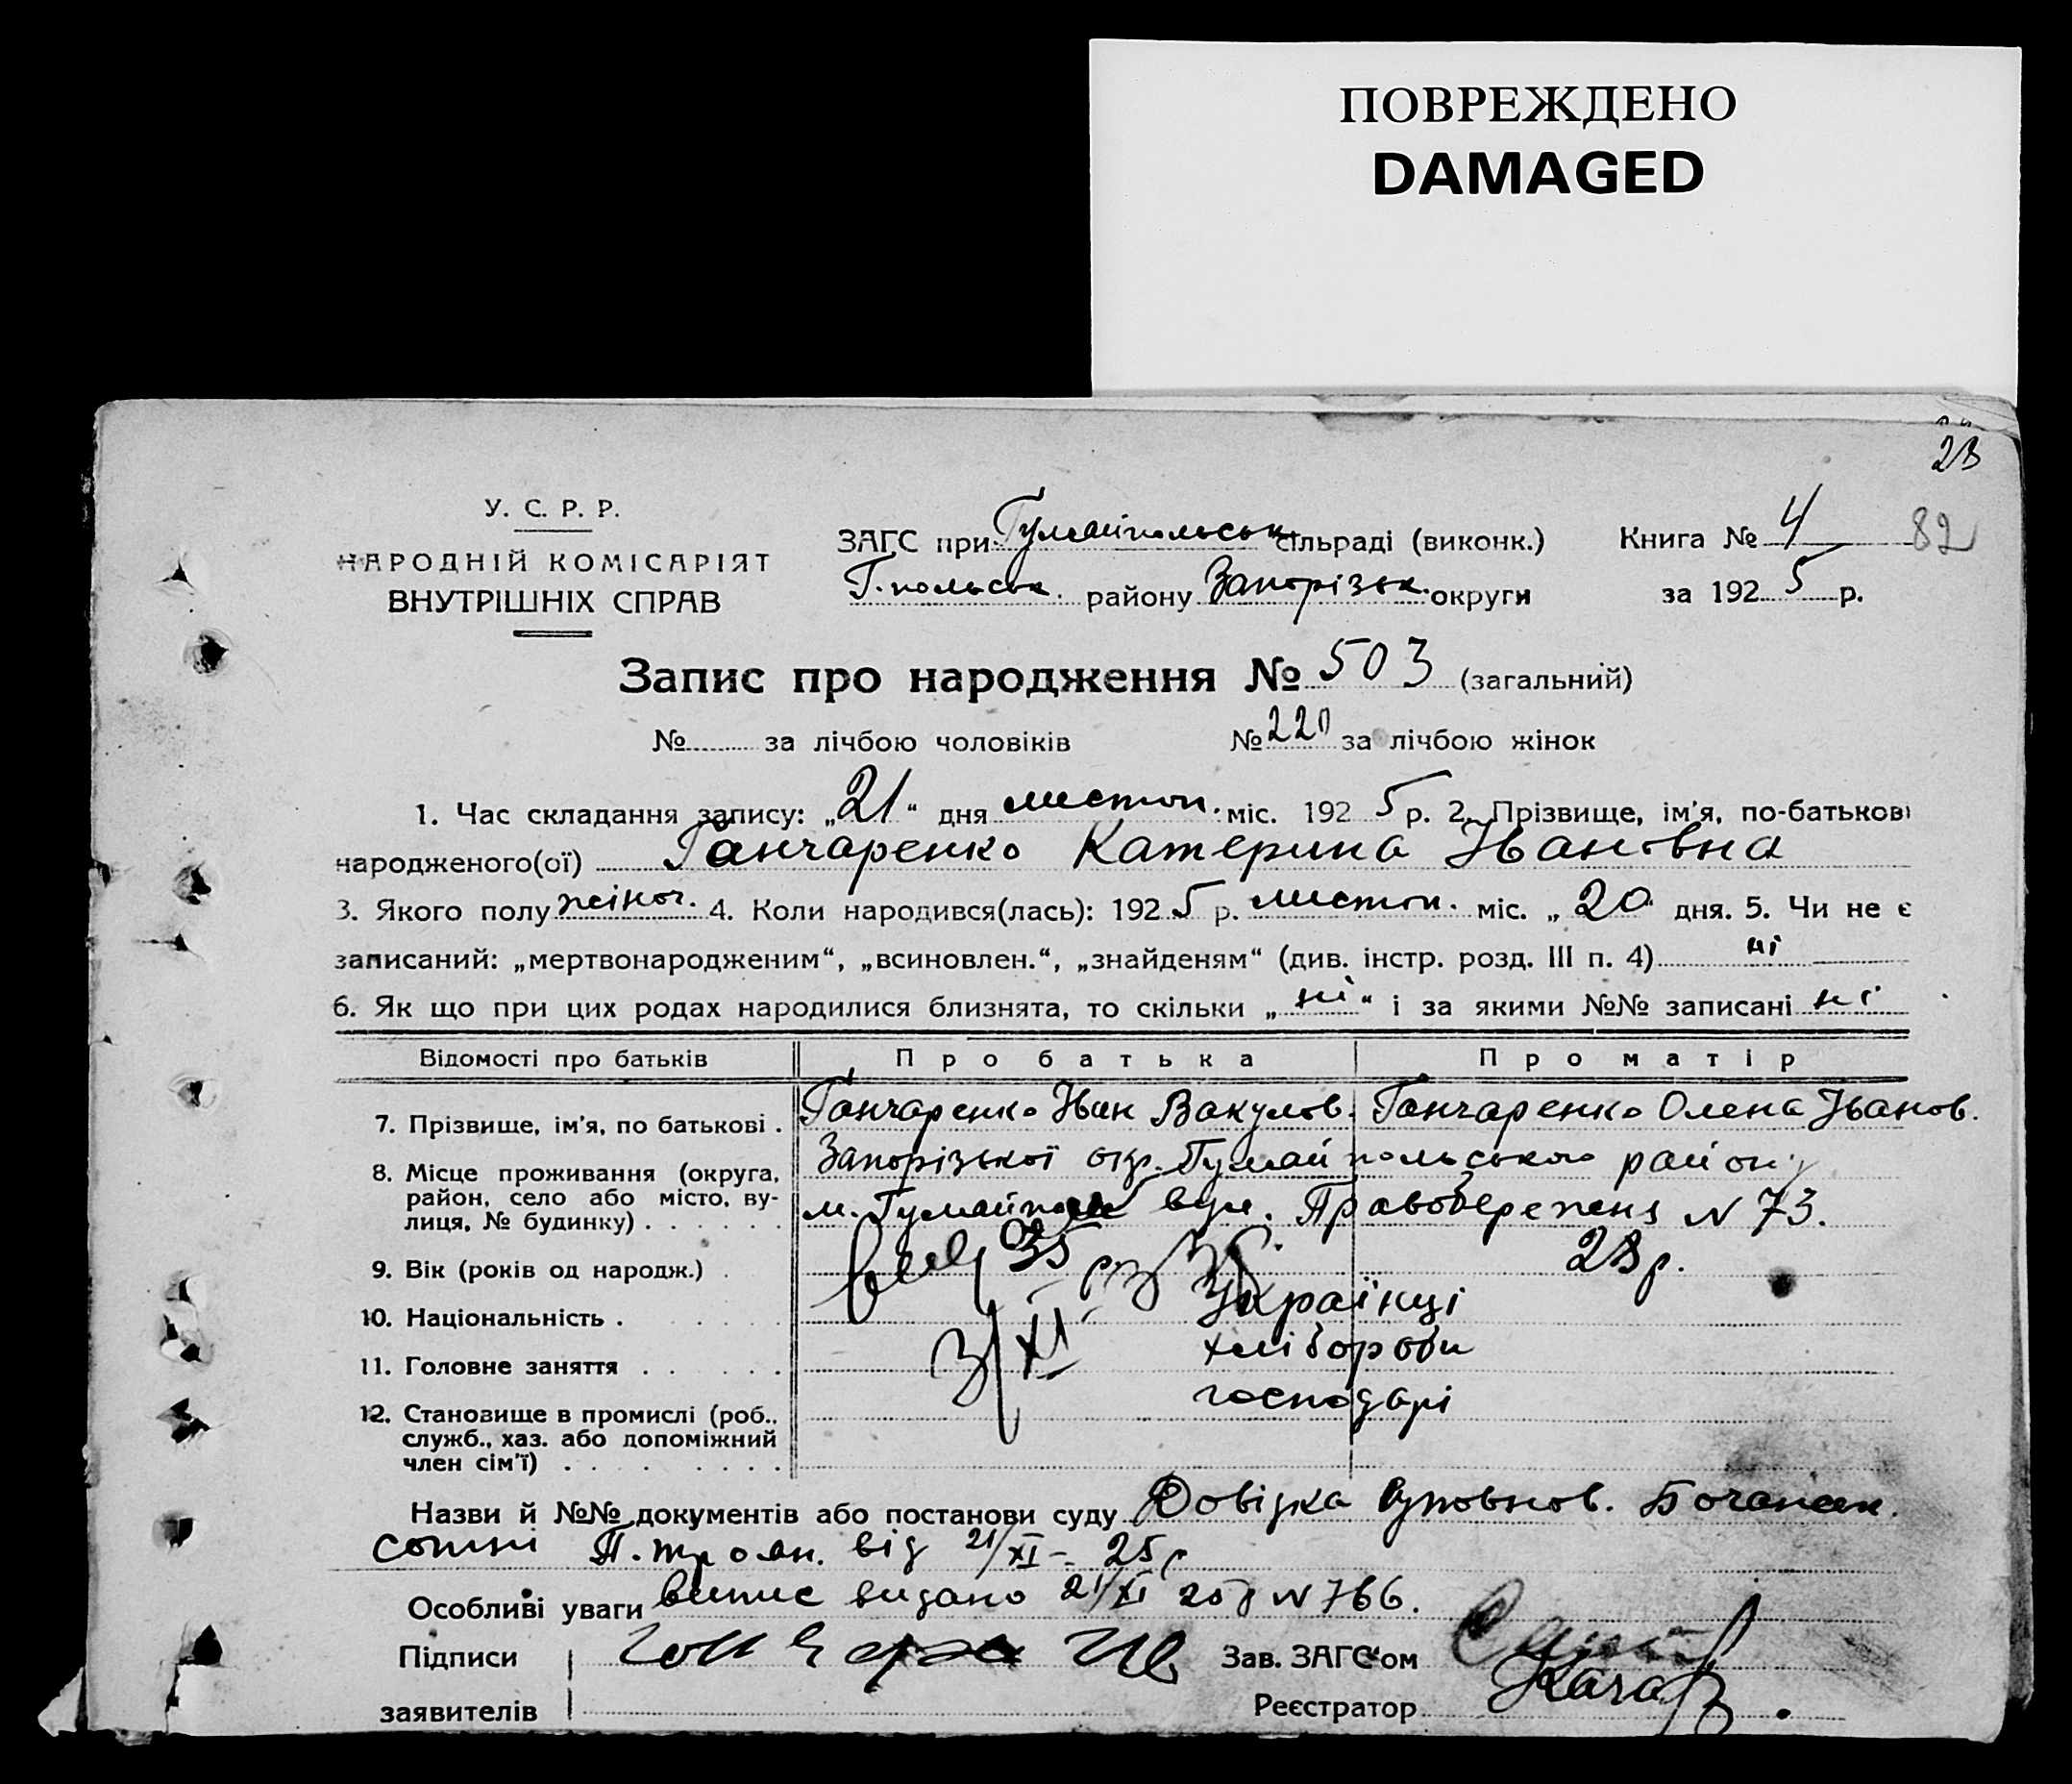 ПОВРЕЖДЕНО
DAMAGED
23
У. С. Р. Р.
НАРОДНІЙ КОМІСАРІЯТ
ВНУТРІШНІХ СПРАВ
ЗАГС при Гуляйпольськ. сільраді (виконк.)
Г.польськ. району Запорізьк. округи
Книга № 4
82
за 1925 р.
Запис про народження № 503 (загальний)
№ за лічбою чоловіків № 220 за лічбою жінок
1. Час складання запису: „21“ дня листоп. міс. 1925 р. 2. Прізвище, ім'я, по-батькові
народженого(ої) Ганчаренко Катерина Івановна
3. Якого полу жіноч. 4. Коли народився(лась): 1925 р. листоп. міс. „20 дня. 5. Чи не є
записаний: „мертвонародженим“, „всиновлен.“, „знайденям“ (див. інстр. розд. III п. 4) ні
6. Як що при цих родах народилися близнята, то скільки „ні“ і за якими №№ записані ні
Відомості про батьків Про батька Про матір
7. Прізвище, ім'я, по батькові . Ганчаренко Іван Вакулов. Ганчаренко Олена Іванов.
8. Місце проживання (округа, район, село або місто, вулиця, № будинку) . . . . . .
Запорізької окр. Гуляйпольського району
м. Гуляйполе вул. Правобережна N 73.
9. Вік (років од народж.) . 35 28 р.
10. Національність . Українці
11. Головне заняття . . хлібороби
3/XI
12. Становище в промислі (роб., служб., хаз. або допоміжний член сім'ї) . господарі
Назви й №№ документів або постанови суду Довідка Уповнов.
сотні від 21/XI - 25 р
Особливі уваги випис видано 21/XI 25 р N 766.
Підписи
заявителів
Зав. ЗАГС'ом
Реєстратор